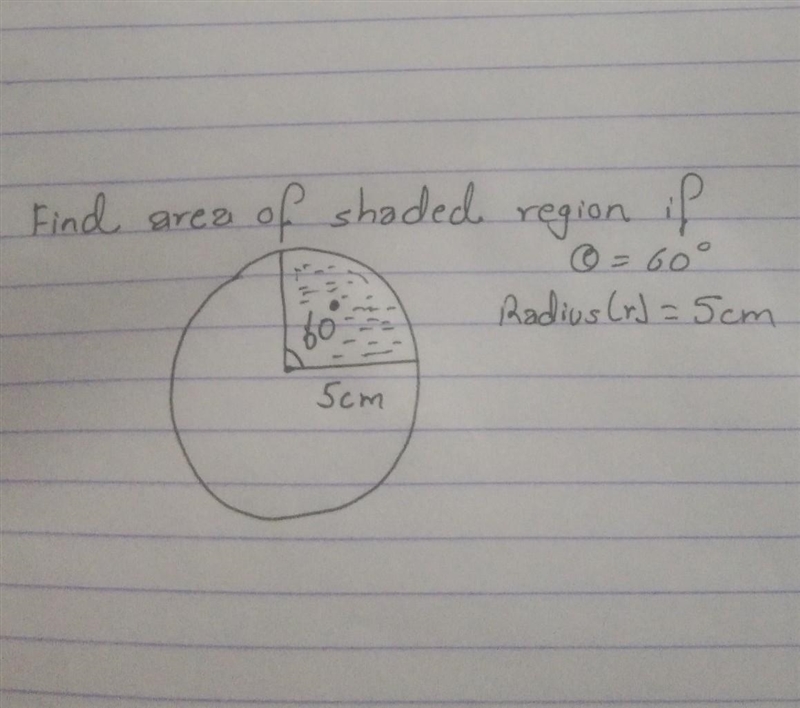 Find area of shaded region if
θ = 60°
Radius(r) = 5cm
60°
5cm